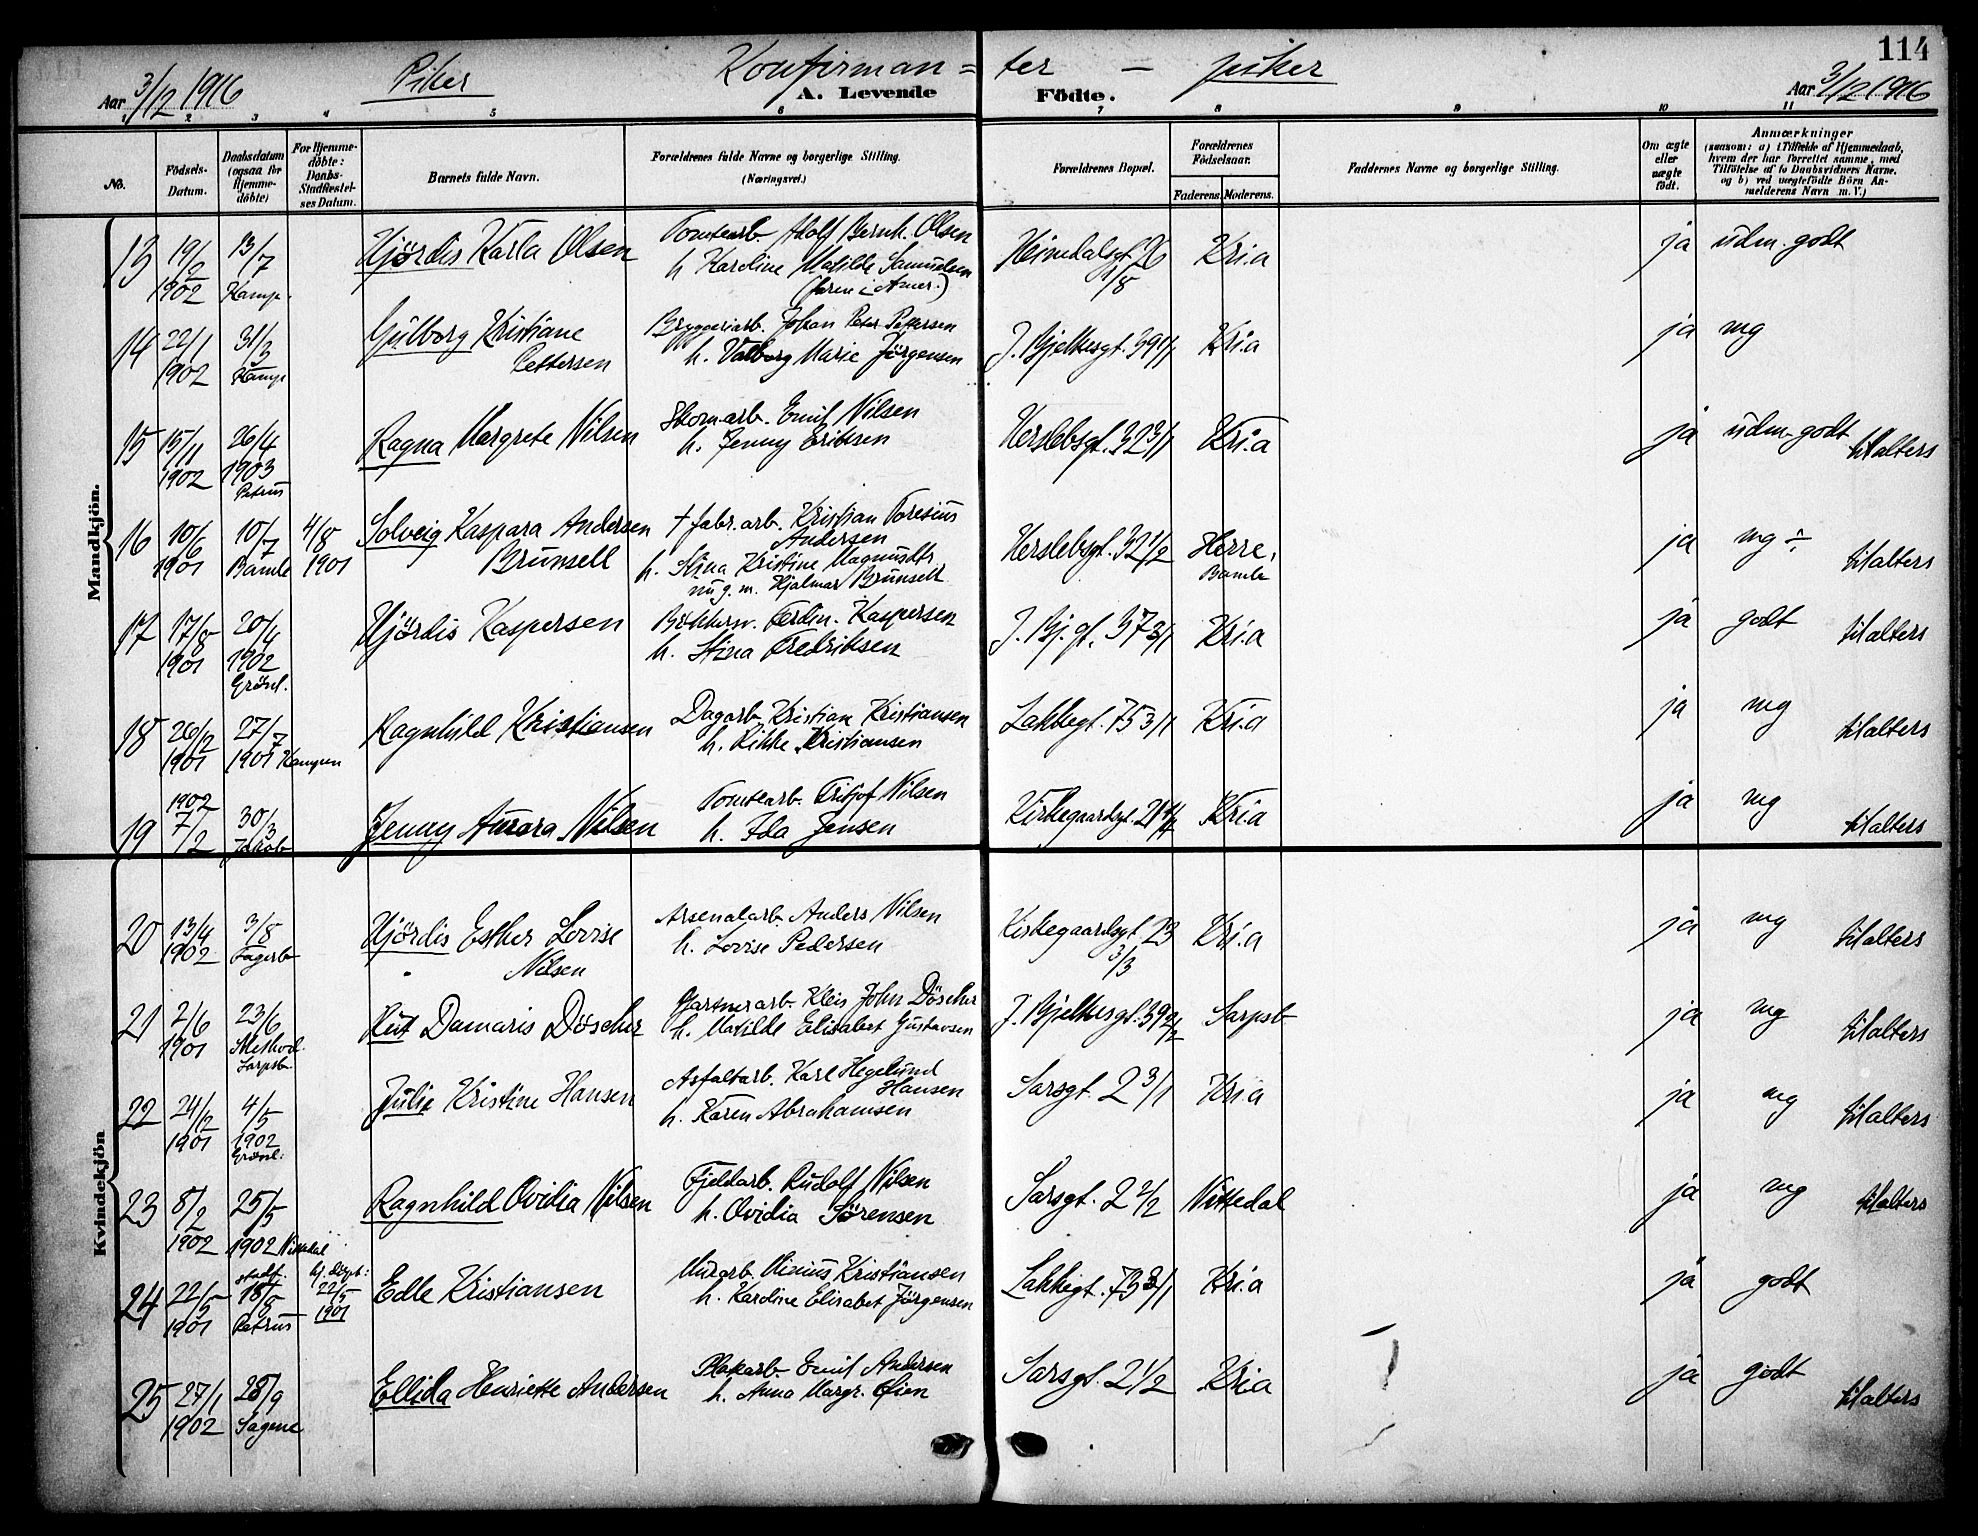 114
Aar 3/12 1916 Piker Konfirman = ter — piker Aar 3/12 1916
A. Levende Födte.
1 2 3 4 5 6 7 8 9 10 11
No.
Födsels-Datum.
Daabsdatum (ogsaa for Hjemme-döbte)
For Hjemme-döbte: Daabs-Stadfæstel-ses Datum.
Barnets fulde Navn.
Forældrenes fulde Navne og borgerlige Stilling.
(Næringsvei.)
Forældrenes Bopæl.
Forældrenes Födselsaar.
Faderens. Moderens.
Faddernes Navne og borgerlige Stilling.
Om ægte eller uægte födt.
Anmærkninger
(saasom: a) i Tilfælde af Hjemmedaab, hvem der har forrettet samme, med Tilföielse af to Daabsvidners Navne, og b) ved uægtefödte Börn An-melderens Navn m. V.)
Mandkjön.
13 19/2 1902 13/7 Kamp. Hjördis Karla Olsen Tomtearb. Adolf Bernh. Olsen
h. Karoline Matilde Samuelsen
(faren i Amer.) Heimdalsgt. 26 1/8 Kria ja udm. godt
14 22/1 1902 31/3 Kamp Gulborg Kristiane
Pettersen Bryggeriarb. Johan Peter Pettersen
h. Valborg Marie Jörgensen J. Bjelkesgt. 39 1/1 Kria ja mg
15 15/11 1902 26/4 1903 Petrus Ragna Margrete Nilsen Skomarb. Emil Nilsen
h. Jenny Eriksen Herslebsgt. 32 3/1 Kria ja udm. godt til alters
16 10/6 1901 10/7 Bamle 4/8 1901 Solveig Kaspara Andersen
Brunsell † fabr.arb. Kristian Toresius
Andersen
h. Stina Kristine Magnusdtr
nu g. m. Hjalmar Brunsell Herslebsgt. 32 1/2 Herre, Bamle ja mg ÷ til alters
17 17/8 1901 20/4 1902 Grönl. Hjördis Kaspersen Bökkersv. Ferdin. Kaspersen
h. Stina Fredriksen J. Bj. gt. 37 3/1 Kria ja godt til alters
18 26/2 1901 27/7 1901 Kampen Ragnhild Kristiansen Dagarb. Kristian Kristiansen
h. Rikke Kristiansen Lakkegt. 75 3/1 Kria ja mg til alters
19 1902 7/2 30/3 Jakob Jenny Aurora Nilsen Tomtearb. Fritjof Nilsen
h. Ida Jensen Kirkegaardsgt. 21 4/4 Kria ja mg til alters
Kvindekjön
20 13/4 1902 3/8 Fagerb Hjördis Esther Lovise
Nilsen Arsenalarb. Anders Nilsen
h. Lovise Pedersen Kirkegaardsgt. 23 3/3 Kria ja mg til alters
21 2/6 1901 23/6 Method. Sarpsb. Rut Damaris Döscher Gartnerarb. Kleis John Döscher
h. Matilde Elisabet Gustavsen J. Bjelkesgt. 39 2/2 Sarpsb ja mg til alters
22 24/12 1901 4/5 1902 Grönl. Julie Kristine Hansen Asfaltarb. Karl Hegelund
Hansen
h. Karen Abrahamsen Sarsgt. 2 3/1 Kria ja mg til alters
23 8/2 1902 25/5 1902 Nittedal Ragnhild Ovidia Nilsen Fjeldarb. Rudolf Nilsen
h. Ovidia Sörensen Sarsgt. 2 2/2 Nittedal ja mg til alters
24 22/5 1901 stadf. 18/8 Petrus hj. döpt: 22/5 1901 Edle Kristiansen Murarb. Minius Kristiansen
h. Karoline Elisabet Jörgensen Lakkegt. 73 3/1 Kria ja godt
25 27/1 1902 28/9 Sagene Ellida Henriette Andersen Plakarb. Emil Andersen
h. Anna Margr. Öien Sarsgt. 2 1/2 Kria ja godt til alters